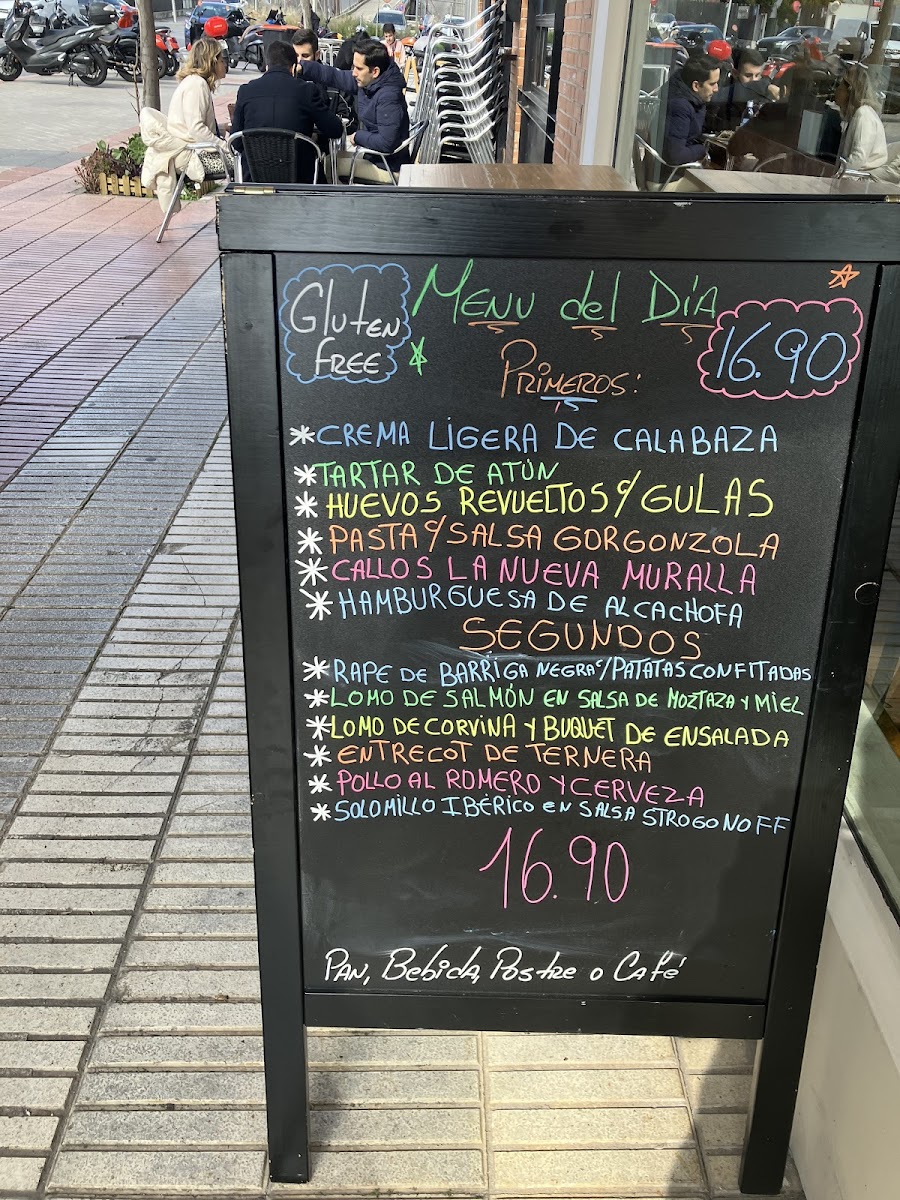 Gluten
Free
Menu del Día
16.90
Primeros:
*CREMA LIGERA DE CALABAZA
*TARTAR DE ATÚN
*HUEVOS REVUELTOS c/ GULAS
*PASTA c/ SALSA GORGONZOLA
*CALLOS LA NUEVA MURALLA
*HAMBURGUESA DE ALCACHOFA
SEGUNDOS
*RAPE DE BARRIGA NEGRA c/ PATATAS CONFITADAS
*LOMO DE SALMÓN EN SALSA DE MOZTAZA Y MIEL
*LOMO DE CORVINA Y BUQUET DE ENSALADA
*ENTRECOT DE TERNERA
*POLLO AL ROMERO Y CERVEZA
*SOLOMILLO IBÉRICO EN SALSA STROGONOFF
16.90
Pan, Bebida, Postre o Café